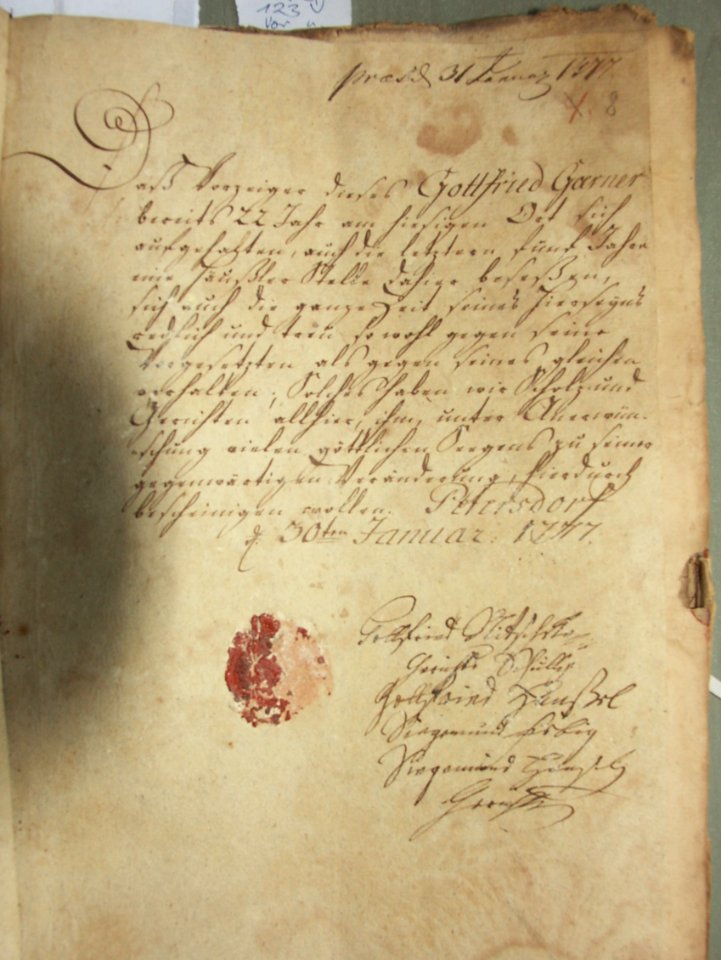 123
Vor
præsd 31 Januar 1777.
X. 8
Daß Vorzeiger dieses Gottfried Garner
bereits 22 Jahr am hiesigen Ort sich
aufgehalten, auch die letztern fünf Jahre
eine Häußler Stelle daher beseßen,
sich auch die ganze Zeit seines Hierseyns
redlich und treu, so wohl gegen seine
Vorgesetzten als gegen seines gleichen
verhalten; Solches haben wir Scholz und
Gerichten allhier, ihm, unter Anerwün-
schung vielen göttlichen Seegens zu seiner
gegenwärtigen Veränderung, hierdurch
bescheinigen wollen. Petersdorf
d. 30ten Januar. 1777.
Gottfried
Gerichts
Gottfried Hänßel
Siegmund
Siegmund
Gerichte